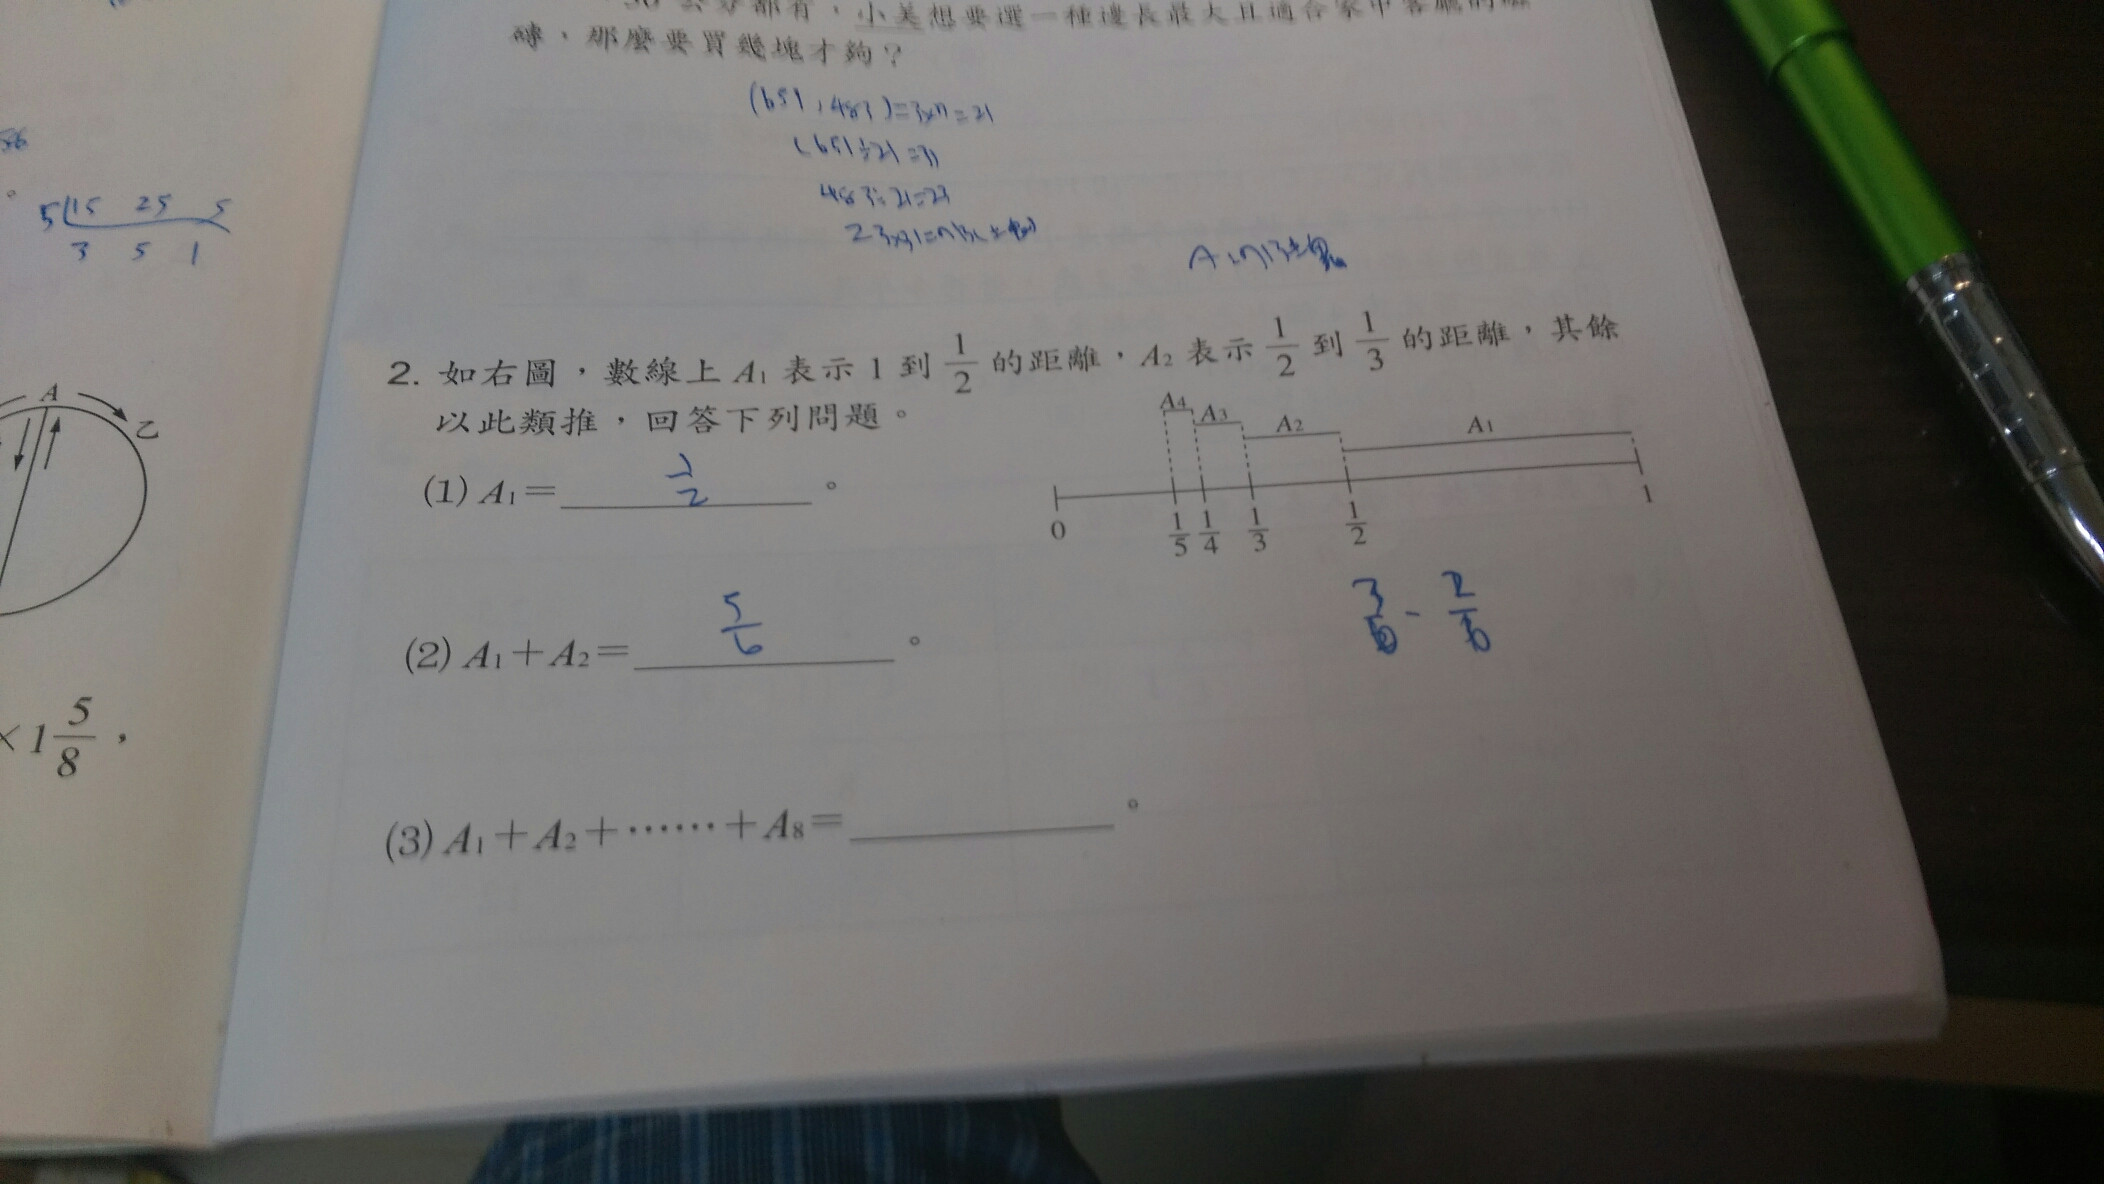 公分都有，小美想要選一種邊長最大且適合家中客廳的磁
磚，那麼要買幾塊才夠？
(651,483)=3×7=21
651÷21=31
483÷21=23
23×31=713
A:713塊
5 15 25 5
3 5 1
A
乙
×1 5/8，
2. 如右圖，數線上 A1 表示 1 到 1/2 的距離，A2 表示 1/2 到 1/3 的距離，其餘
以此類推，回答下列問題。
A4 A3 A2 A1
0 1/5 1/4 1/3 1/2 1
(1) A1＝ 1/2 。
3/6 - 2/6
(2) A1＋A2＝ 5/6 。
(3) A1＋A2＋……＋A8＝ 。